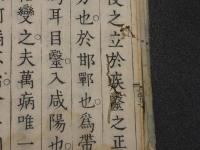 之立於疾醫之正
也於邯鄲也爲帶
耳目醫入咸陽也
變之夫萬病唯一